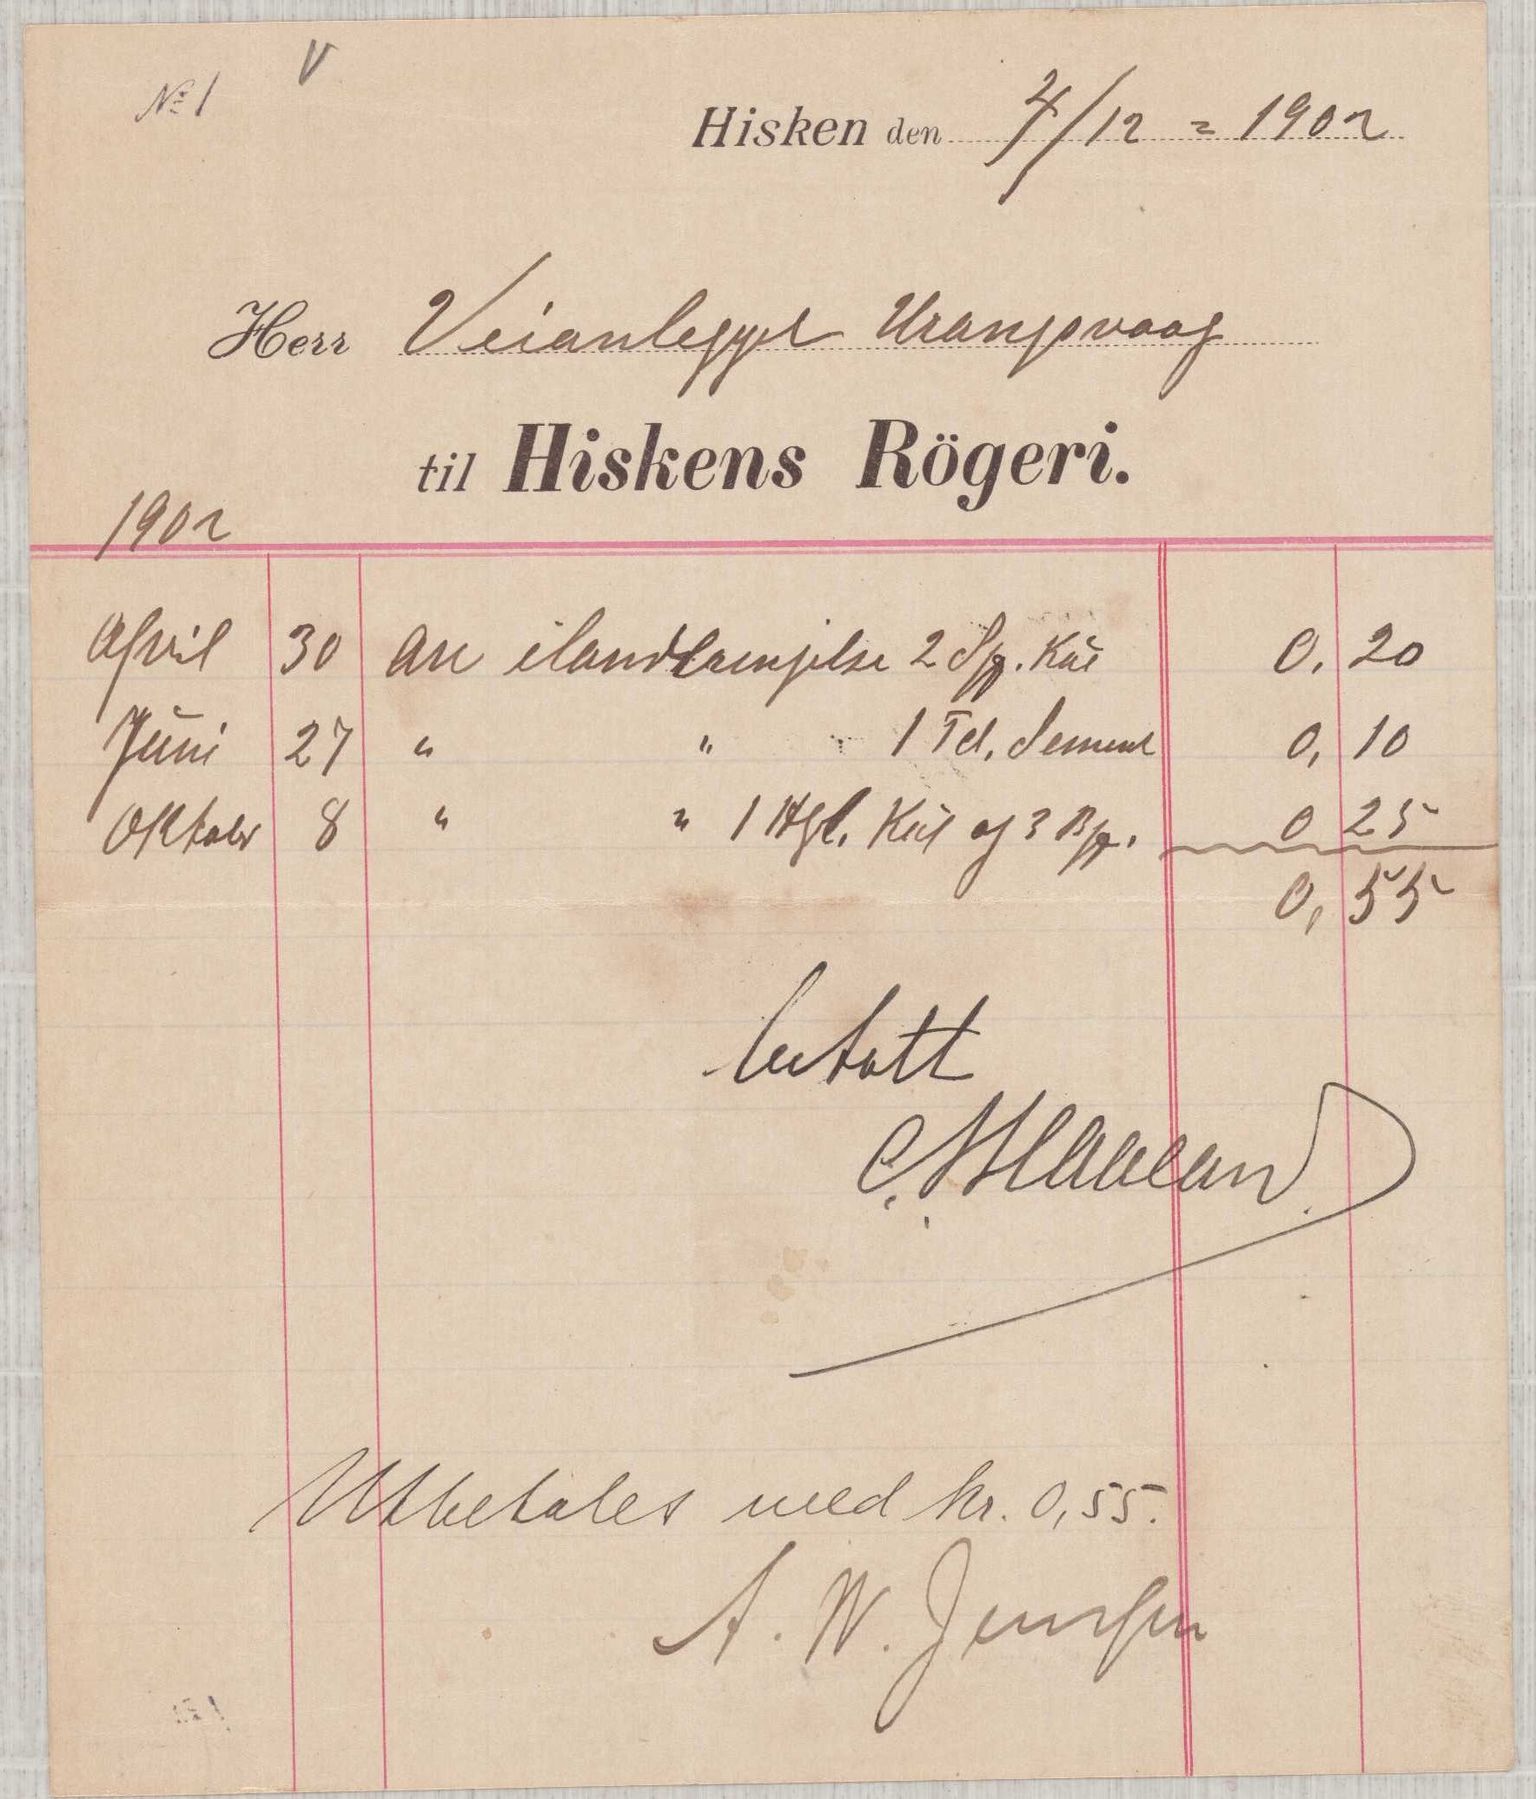 No 1 V
Hisken den 4/12 = 1902
Herr Veianlegget Urangsvaag
til Hiskens Rögeri.
1902
April 30 An ilandbringelse 2 Sp. Kül 0, 20
Juni 27 " " 1 Td. Sement 0, 10
Oktober 8 " " 1 Hgl. Kül og 3 Bp. 0 25
0, 55
betalt
Utbetales med kr. 0,55.
A. W. Jensen